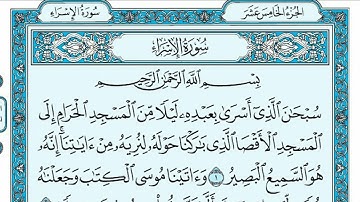 سُورَةُ الإِسْرَاءِ الجُزْءُ الخَامِسَ عَشَرَ
سُورَةُ الإِسْرَاءِ
بِسْمِ ٱللَّهِ ٱلرَّحْمَٰنِ ٱلرَّحِيمِ
سُبْحَٰنَ ٱلَّذِىٓ أَسْرَىٰ بِعَبْدِهِۦ لَيْلًا مِّنَ ٱلْمَسْجِدِ ٱلْحَرَامِ إِلَى
ٱلْمَسْجِدِ ٱلْأَقْصَا ٱلَّذِى بَٰرَكْنَا حَوْلَهُۥ لِنُرِيَهُۥ مِنْ ءَايَٰتِنَآ إِنَّهُۥ
هُوَ ٱلسَّمِيعُ ٱلْبَصِيرُ ١ وَءَاتَيْنَا مُوسَى ٱلْكِتَٰبَ وَجَعَلْنَٰهُ